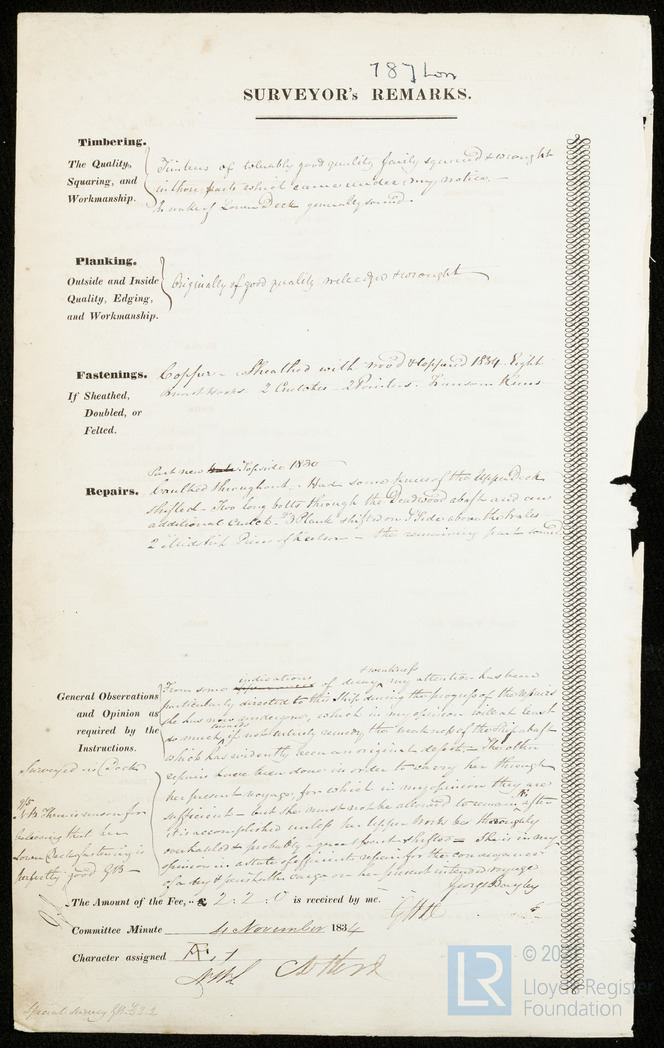 787 Lon
SURVEYOR's REMARKS.
Timbering.
The Quality,
Squaring, and
Workmanship.
Timbers of tolerably good quality fairly squared & wrought
in those parts which came under my notice. —
Lower Deck generally sound.
Planking.
Outside and Inside
Quality, Edging,
and Workmanship.
Originally of good quality well edged & wrought
Fastenings.
If Sheathed,
Doubled, or
Felted.
Copper — Sheathed with wood & coppered 1834. Eight
Breast Hooks. 2 Crutches — 2 Pointers. Transom Knees
Repairs.
Part new Topside 1830
Caulked throughout. Had some pieces of the Upper Deck
shifted — Two long bolts through the Deadwood abaft and an
additional Crutch. 3 Plank shifted on Side above the Wales
2 Midship Pieces of Keelson — the remaining part sound
General Observations
and Opinion as
required by the
Instructions.
indications & weakness
From some of decay my attention has been
particularly directed to this Ship during the progress of the repairs
she has now undergone, which in my opinion will at least
so much if not entirely remedy the weakness of the Ship abaft
which has evidently been an original defect. — The other
repairs have been done in order to carry her through
her present voyage, for which in my opinion they are
sufficient — but she must not be allowed to remain A1 after
it is accomplished unless her Upper Works be thoroughly
overhauled & probably a great part shifted — She is in my
opinion in a state of efficient repair for the conveyance
of a dry & perishable cargo on her present intended voyage
George Bayley
Surveyed in Dock
NB. There is reason for
believing that her
Lower Deck fastening is
perfectly good GB —
The Amount of the Fee, .. £ 2 : 2 : 0 is received by me.
Committee Minute 4 November 1834
Character assigned A. 1
Special Survey GB £2.2
© 20
Lloyd's Register
Foundation
LR